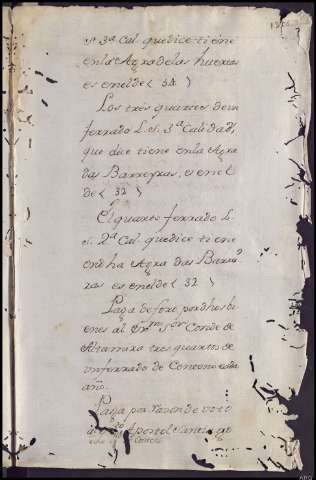 3ª Cal. que dice tiene
en la Agra de las huertas
es en el de ( 34 )
Los tres quartos de un
ferrado L. s. 3ª Calidad,
que dice tiene en la Agra
das Barreyras, es en el
de ( 32 )
El quarto ferrado L.
s. 2ª Cal. que dice tiene
en dha Agra das Barrei
ras es en el de ( 32 )
Paga de foro, por dhos bi
enes al Exmo Sor Conde de
Altamira tres quartos de
un ferrado de Centeno cada
año.
Paga por razon de voto
Apostol Santiago